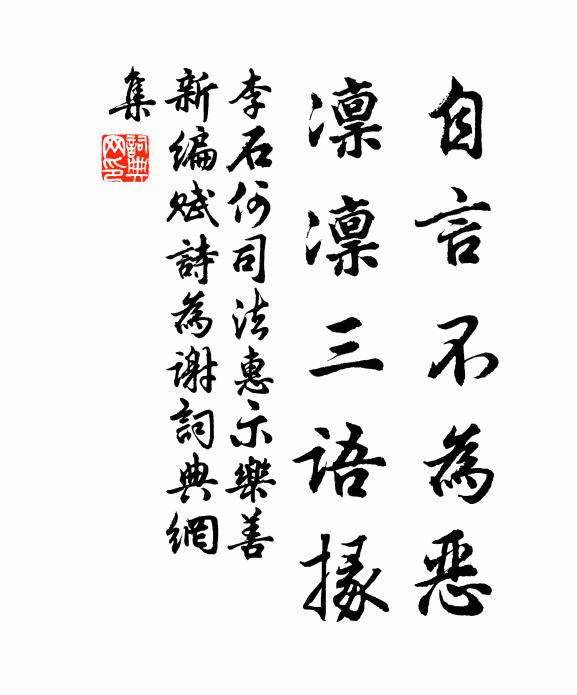 自言不為惡
凜凜三語掾
李石何司法惠示樂善
新編賦詩為謝詞典網
集
詞典網印